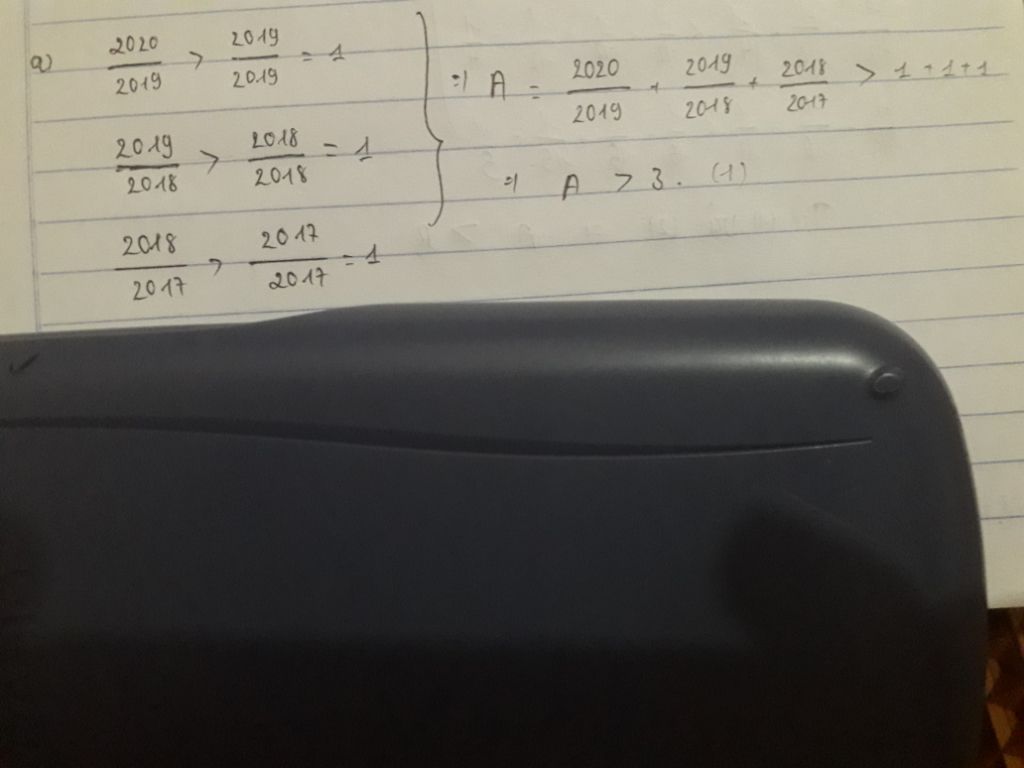 a) 2020/2019 > 2019/2019 = 1
2019/2018 > 2018/2018 = 1
2018/2017 > 2017/2017 = 1
=) A = 2020/2019 + 2019/2018 + 2018/2017 > 1 + 1 + 1
=) A > 3. (1)